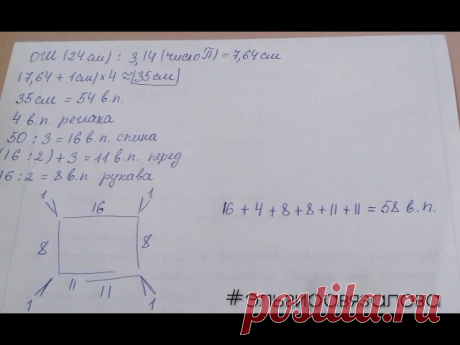 ОШ (24 см) : 3,14 (число П) = 7,64 см
(7,64 + 1 см) × 4 ≈ 35 см
35 см = 54 в.п.
4 в.п. реглана
50 : 3 = 16 в.п. спина
(16 : 2) + 3 = 11 в.п. перед
16 : 2 = 8 в.п. рукава
1 16 1
16 + 4 + 8 + 8 + 11 + 11 = 58 в.п.
8 8
11 11
1 1
postila.ru